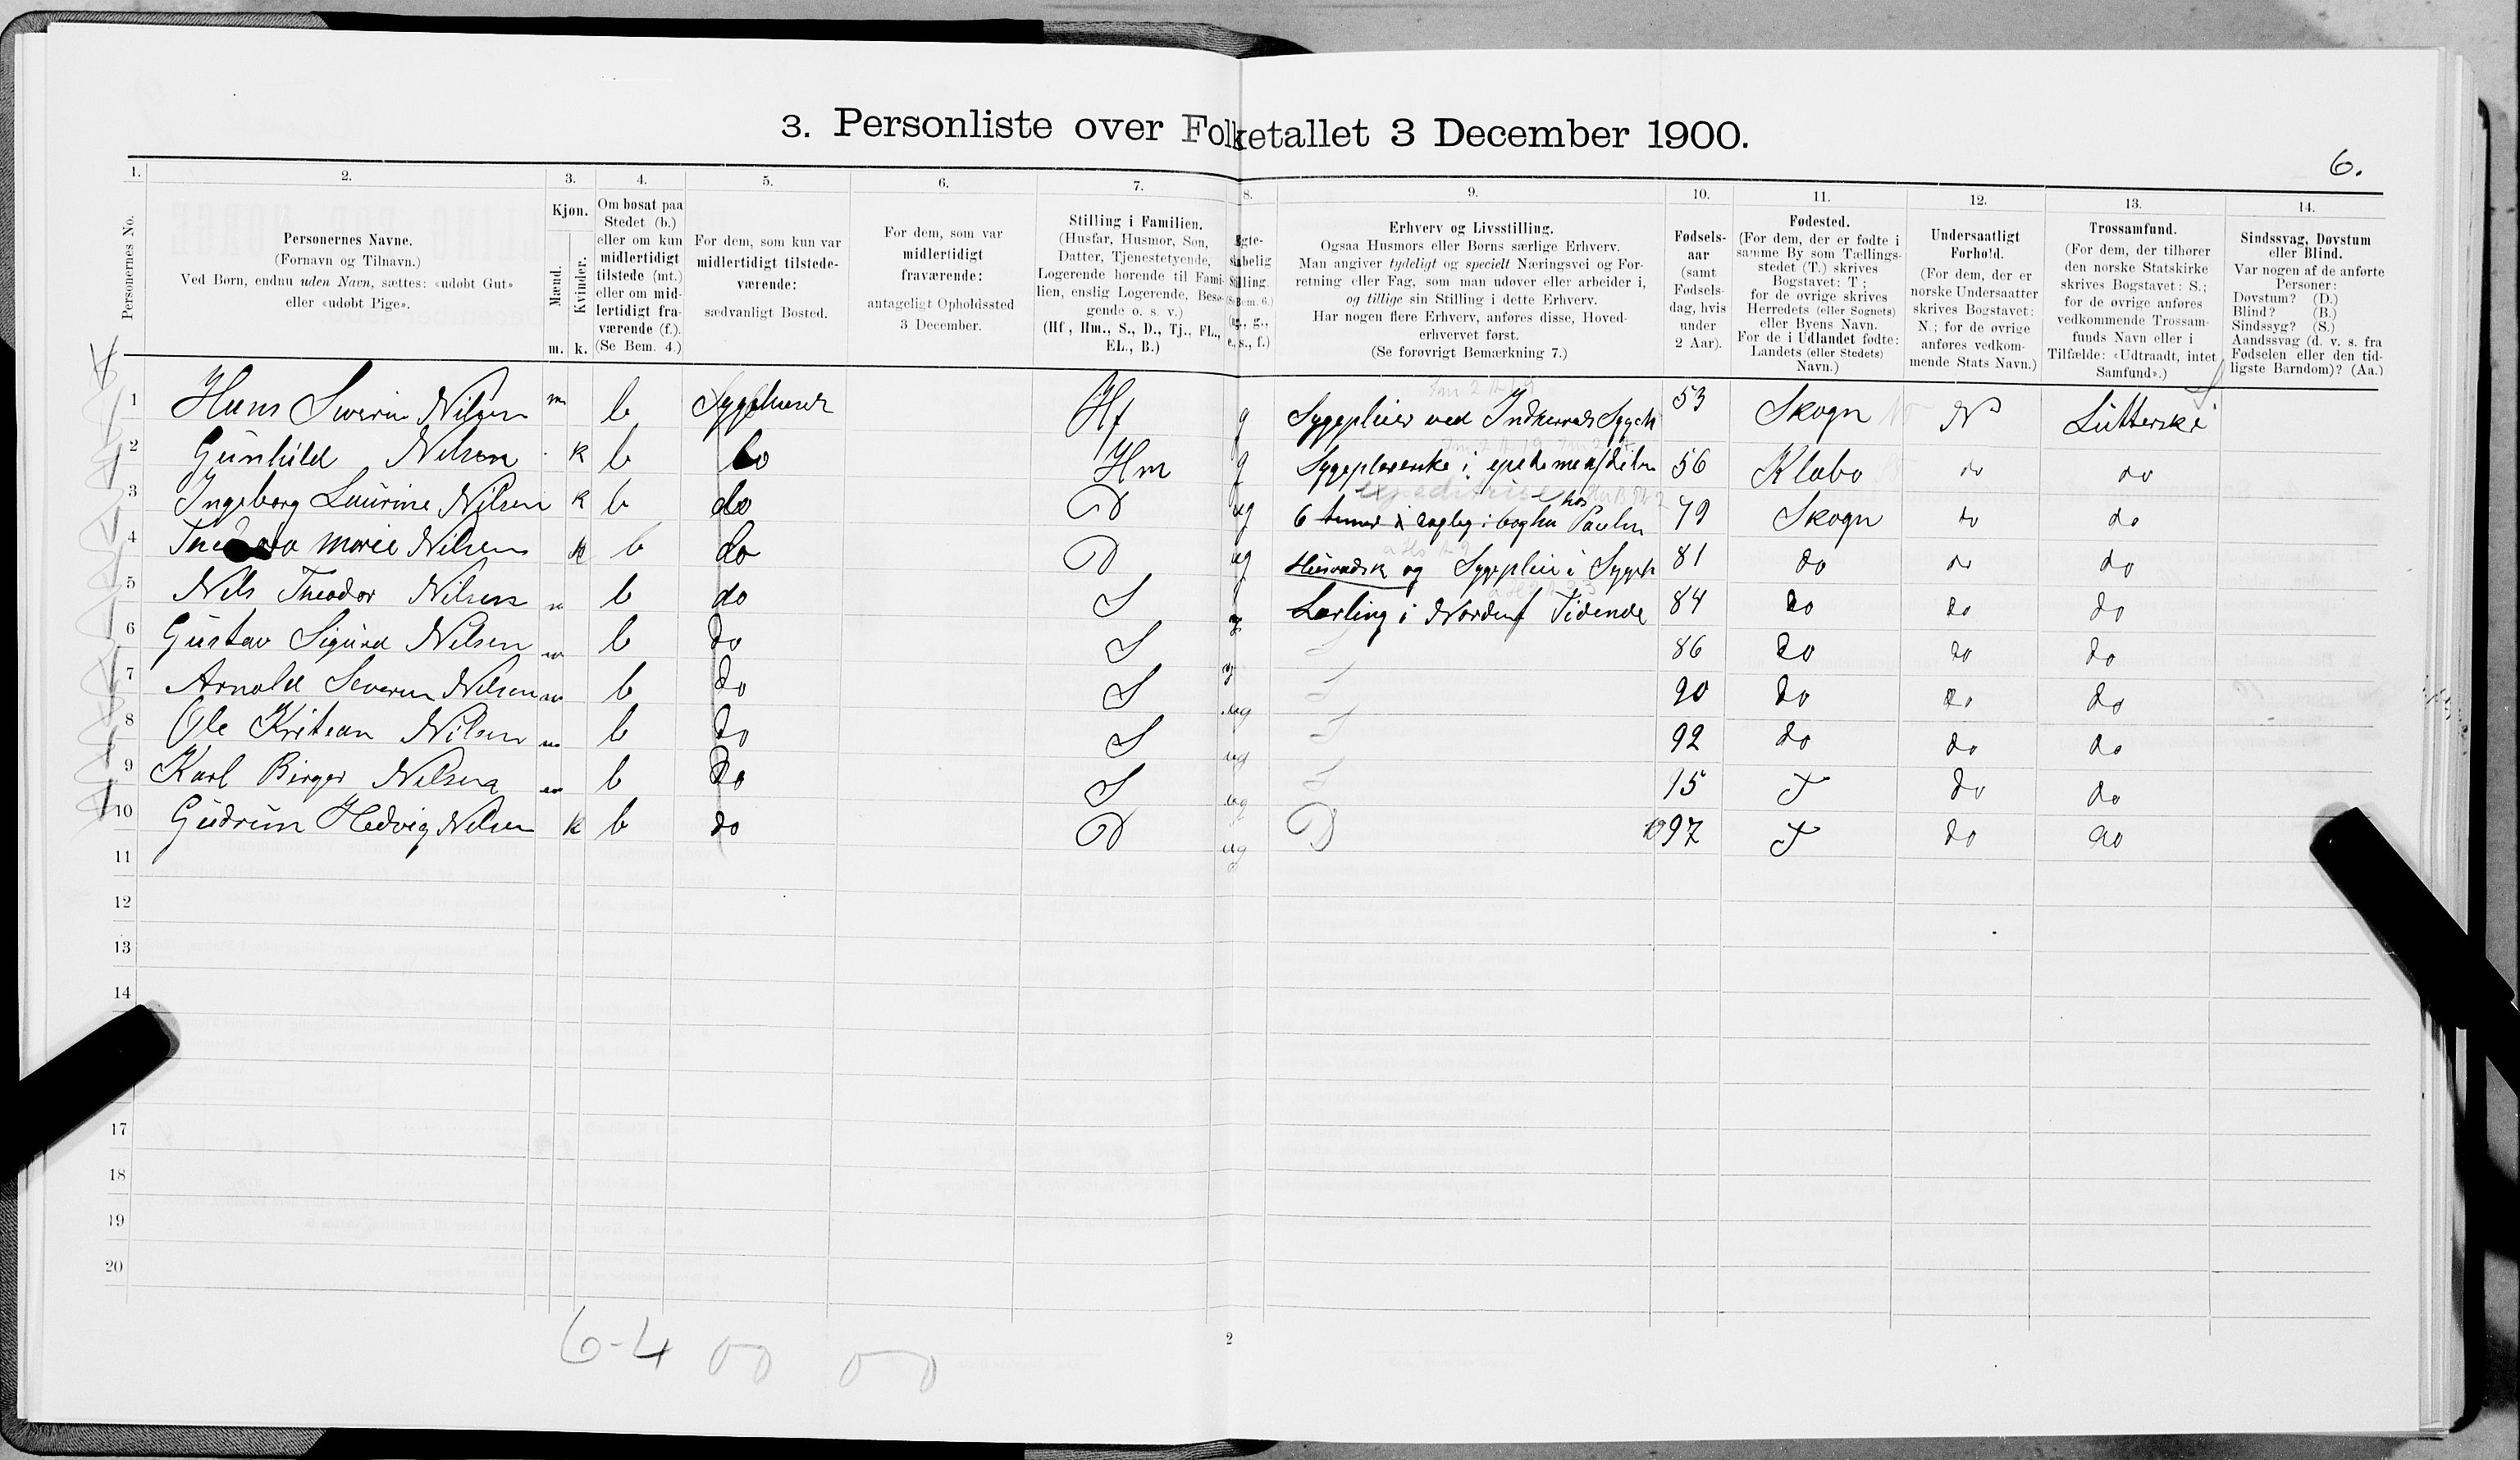 3. Personliste over Folketallet 3 December 1900.
6.
1. 2. 3. 4. 5. 6. 7. 8. 9. 10. 11. 12. 13. 14.
Personernes No.
Personernes Navne.
(Fornavn og Tilnavn.)
Ved Børn, endnu uden Navn, sættes: «udøbt Gut»
eller «udøbt Pige».
Kjøn.
Mænd.
Kvinder.
m. k.
Om bosat paa
Stedet (b.)
eller om kun
midlertidigt
tilstede (mt.)
eller om mid-
lertidigt fra-
værende (f.).
(Se Bem. 4.)
For dem, som kun var
midlertidigt tilstede-
værende:
sædvanligt Bosted.
For dem, som var
midlertidigt
fraværende:
antageligt Opholdssted
3 December.
Stilling i Familien.
(Husfar, Husmor, Søn,
Datter, Tjenestetyende,
Logerende hørende til Fami-
lien, enslig Logerende, Besø-
gende o. s. v.)
(Hf., Hm., S., D., Tj., FL.,
EL., B.)
Ægte-
skabelig
Stilling.
(Se Bem. 6.)
(ug., g.,
e., s., f.)
Erhverv og Livsstilling.
Ogsaa Husmors eller Børns særlige Erhverv.
Man angiver tydeligt og specielt Næringsvei og For-
retning eller Fag, som man udøver eller arbeider i,
og tillige sin Stilling i dette Erhverv.
Har nogen flere Erhverv, anføres disse, Hoved-
erhvervet først.
(Se forøvrigt Bemærkning 7.)
Fødsels-
aar
(samt
Fødsels-
dag, hvis
under
2 Aar).
Fødested.
(For dem, der er fødte i
samme By som Tællings-
stedet (T.) skrives
Bogstavet: T;
for de øvrige skrives
Herredets (eller Sognets)
eller Byens Navn.
For de i Udlandet fødte:
Landets (eller Stedets)
Navn.)
Undersaatligt
Forhold.
(For dem, der er
norske Undersaatter
skrives Bogstavet:
N.; for de øvrige
anføres vedkom-
mende Stats Navn.)
Trossamfund.
(For dem, der tilhører
den norske Statskirke
skrives Bogstavet: S.;
for de øvrige anføres
vedkommende Trossam-
funds Navn eller i
Tilfælde: «Udtraadt, intet
Samfund».)
Sindssvag, Døvstum
eller Blind.
Var nogen af de anførte
Personer:
Døvstum? (D.)
Blind? (B.)
Sindssyg? (S.)
Aandssvag (d. v. s. fra
Fødselen eller den tid-
ligste Barndom)? (Aa.)
1 Hans Nilsen m b Hf g Sygepleier ved 53 Skogn N Lutterske
2 Gunhild Nilsen k b do Hm g Sygepleierske i 56 Klæbo do do
3 Ingeborg Laurine Nilsen k b do D ug 6 hos 79 Skogn do do
4 Marie Nilsen k b do D ug og Sygepleier i 81 do do do
5 Nils Theodor Nilsen m b do S Lærling i Tidende 84 do do do
6 Gustav Sigurd Nilsen m b do S 86 do do do
7 Arnold Severin Nilsen m b do S ug S 90 do do do
8 Ole Nilsen m b do S ug S 92 do do do
9 Karl Birger Nilsen m b do S ug S 95 T do do
10 Gudrun Hedvig Nilsen k b do D ug D 97 T do do
11
12
13
14
17
18
19
20
6-4 00 00
2